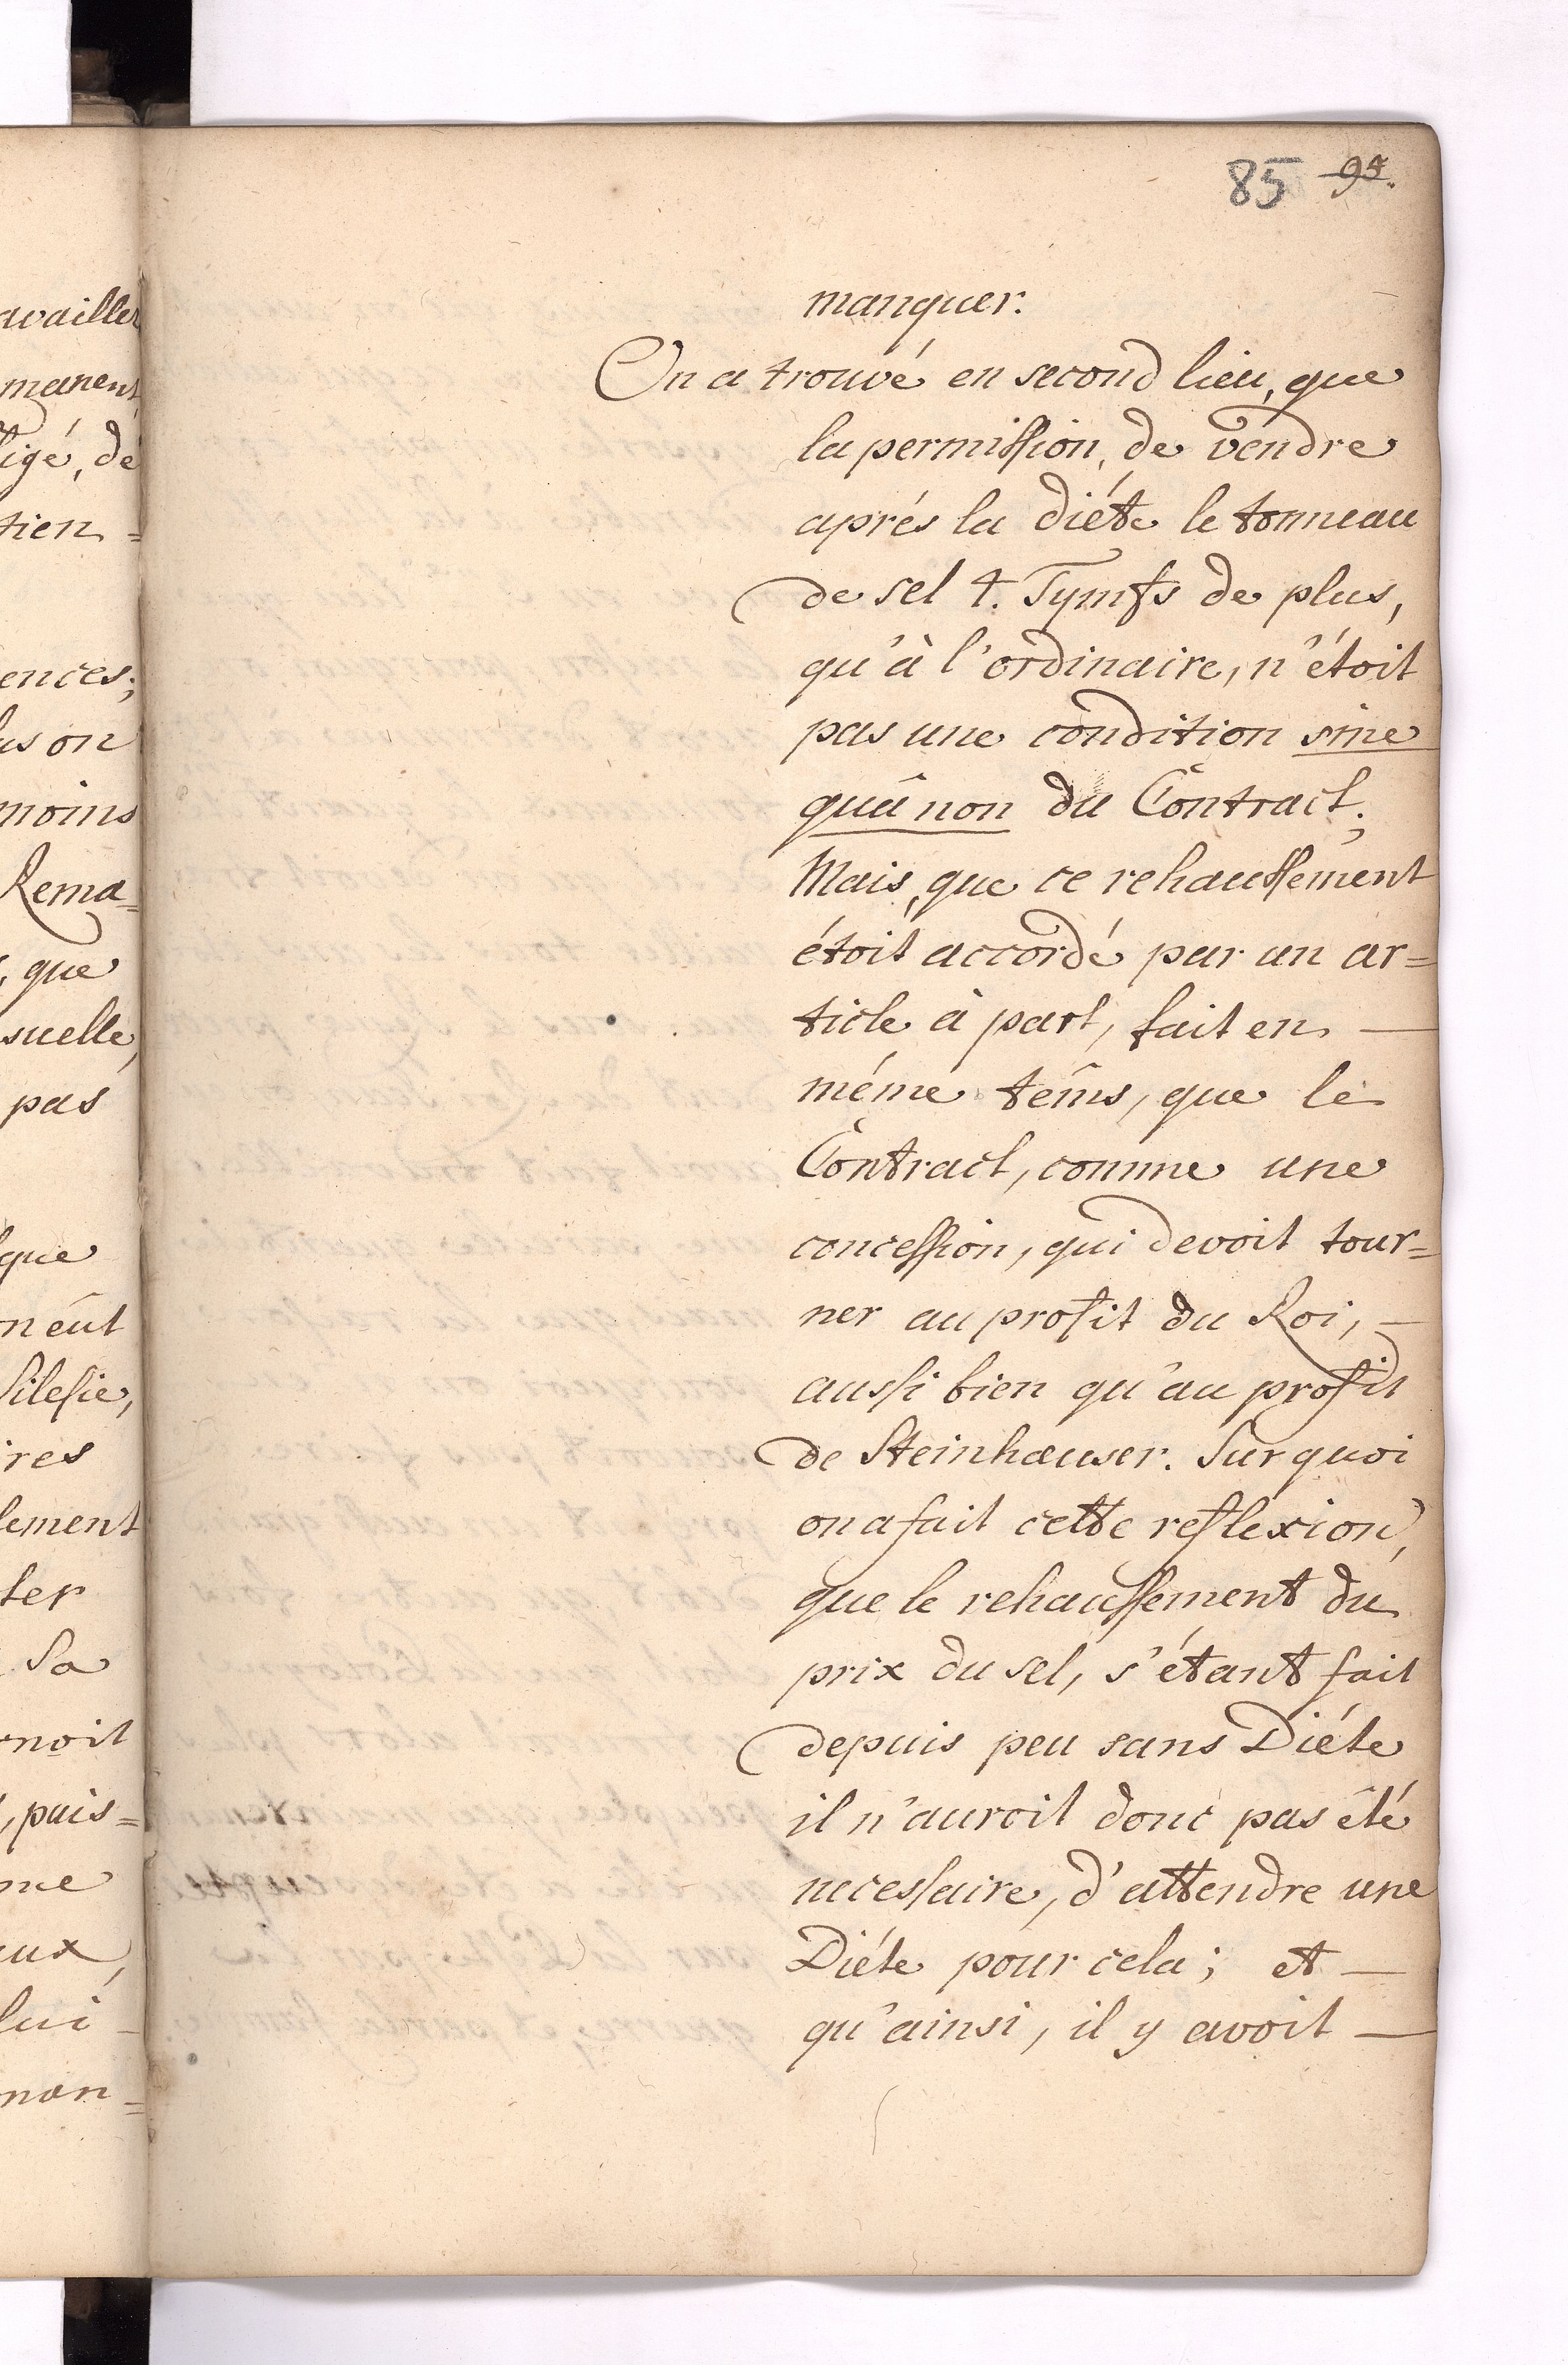 85 95.
manquer.
On a trouvé en second lieu, que
la permission, de vendre
aprés la diéte le tonneau
de sel 4. Tymfs de plus,
qu'à l'ordinaire, n'étoit
pas une condition sine
quâ non du Contract;
Mais, que ce rehaussement
étoit accordé par un ar=
ticle à part, fait en —
méme têms, que le
Contract, comme une
concession, qui devoit tour=
ner au profit du Roi, —
aussi bien qu'au profit
de Steinhæuser. Sur quoi
on a fait cette reflexion,
que le rehaussement du
prix du sel, s'étant fait
depuis peu sans Diéte
il n'auroit donc pas été
necessaire, d'attendre une
Diéte pour cela; et —
qu'ainsi, il y avoit —
availler
manent
ligé, de
tien =
ences;
us on
moins
Rema=
, que
suelle,
pas
que
n eût
Silesie,
ires
lement
ter
Sa
noit
, puis=
me
aux,
lui —
man=